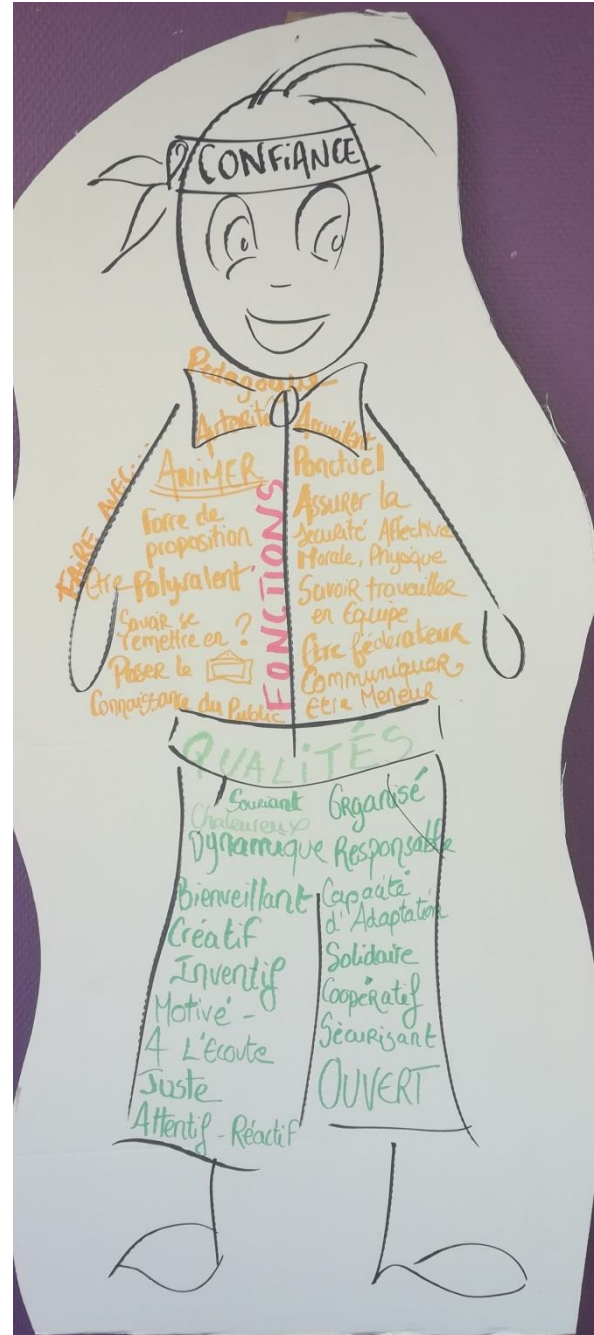 CONFIANCE
Pédagogue
Autorité
ANIMER
FAIRE AVEC...
Force de
proposition
Être Polyvalent
Savoir se
remettre en ?
Poser le
Connaissance du Public
FONCTIONS
Accueillant
Ponctuel
Assurer la
Sécurité Affective
Morale, Physique
Savoir travailler
en Equipe
Être fédérateur
Communiquer
Etre Meneur
QUALITÉS
Souriant
Chaleureux
Dynamique
Bienveillant
Créatif
Inventif
Motivé -
A L'Ecoute
Juste
Attentif - Réactif
Organisé
Responsable
Capacité
d'Adaptation
Solidaire
Coopératif
Sécurisant
OUVERT